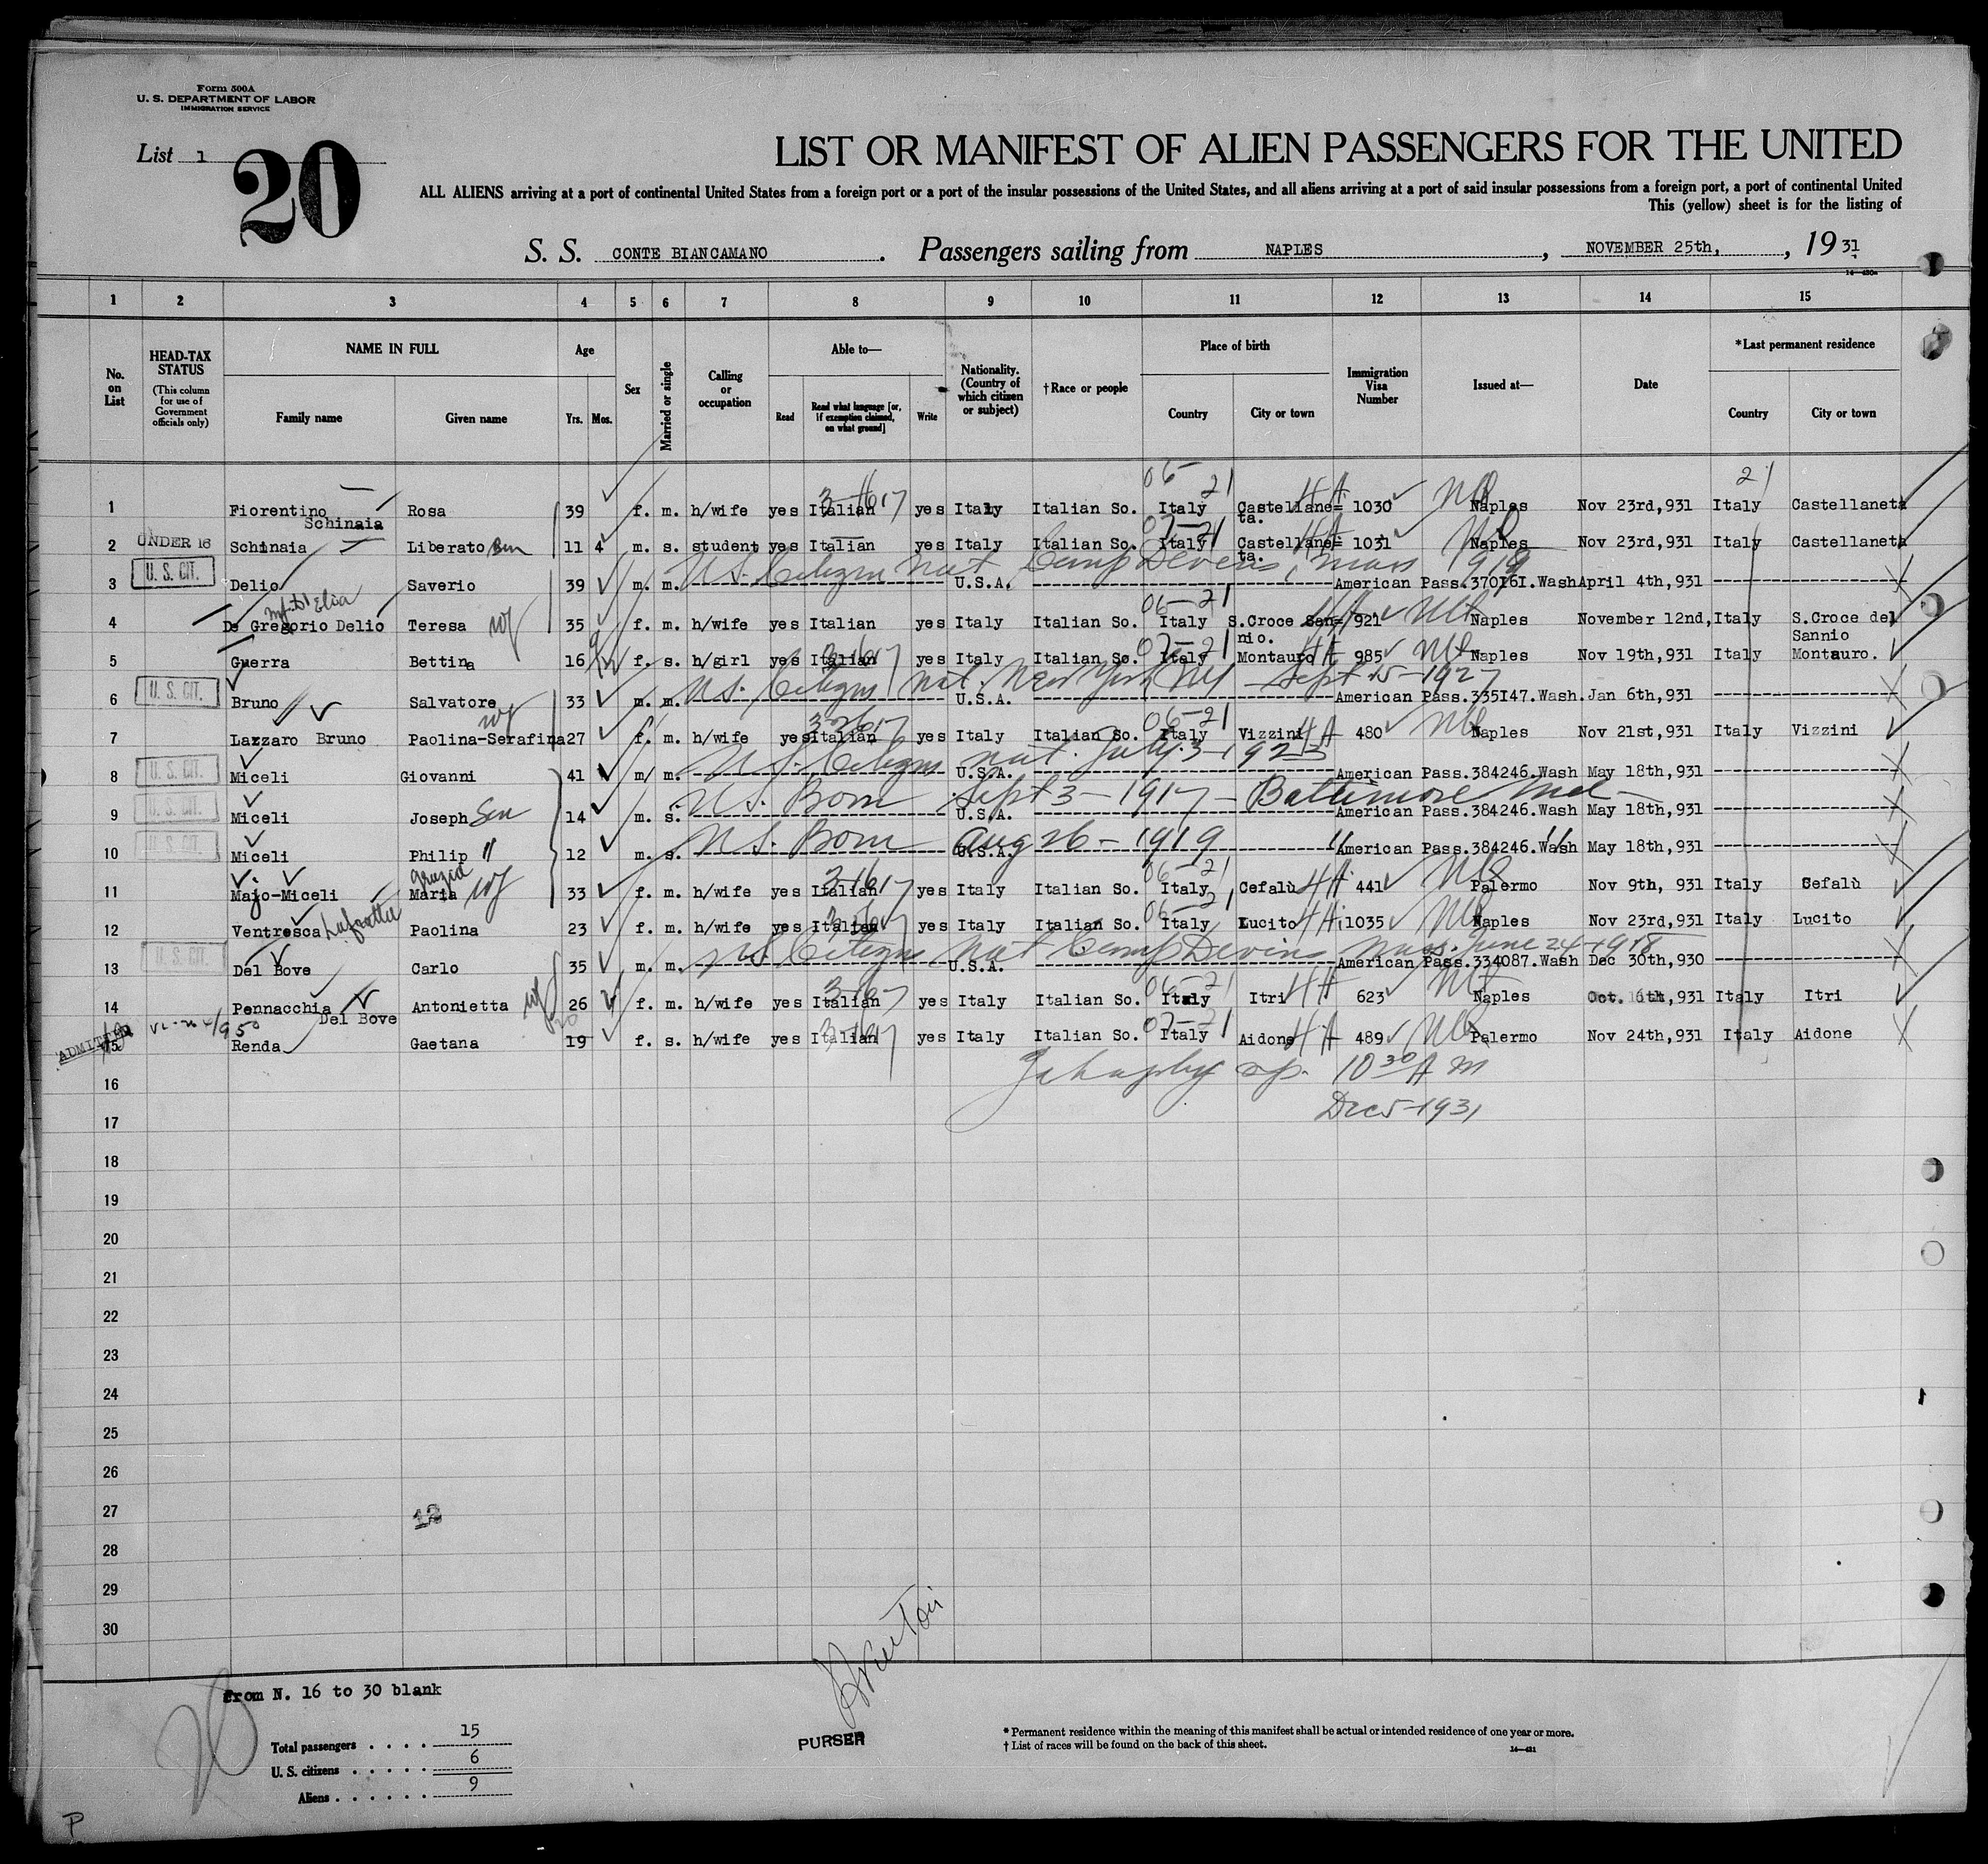 Form 500A
U. S. DEPARTMENT OF LABOR
IMMIGRATION SERVICE
List 1
20
LIST OR MANIFEST OF ALIEN PASSENGERS FOR THE UNITED
ALL ALIENS arriving at a port of continental United States from a foreign port or a port of the insular possessions of the United States, and all aliens arriving at a port of said insular possessions from a foreign port, a port of continental United
This (yellow) sheet is for the listing of
S. S. CONTE BIANCAMANO. Passengers sailing from NAPLES, NOVEMBER 25th, , 1931
1 2 3 4 5 6 7 8 9 10 11 12 13 14 15
No. on List
HEAD-TAX STATUS
(This column for use of Government officials only)
NAME IN FULL
Family name Given name
Age
Yrs. Mos.
Sex
Married or single
Calling or occupation
Able to—
Read
Read what language [or, if exemption claimed, on what ground]
Write
Nationality. (Country of which citizen or subject)
†Race or people
Place of birth
Country City or town
Immigration Visa Number
Issued at—
Date
*Last permanent residence
Country City or town
06- 21 21
1 Fiorentino Schinaia Rosa 39 f. m. h/wife yes Italian yes Italy Italian So. Italy Castellane= ta. 1030 Naples Nov 23rd,931 Italy Castellaneta
2 UNDER 16 Schinaia Liberato 11 4 m. s. student yes Italian yes Italy Italian So. Italy Castellane= ta. 1031 Naples Nov 23rd,931 Italy Castellaneta
U.S. Citizen nat Camp Devens, Mass 1919
3 U. S. CIT. Delio Saverio 39 m. m. U.S.A. American Pass.370161.Wash April 4th,931
06-21
4 De Gregorio Delio Teresa wf 35 f. m. h/wife yes Italian yes Italy Italian So. Italy S.Croce San= nio. 921 Naples November 12nd, Italy S.Croce del Sannio
07-21
5 Guerra Bettina 16 f. s. h/girl yes Italian yes Italy Italian So. Italy Montauro 985 Naples Nov 19th,931 Italy Montauro.
U.S. Citizen nat. New York NY - Sept 15-1927
6 U. S. CIT. Bruno Salvatore 33 m. m. U.S.A. American Pass.335147.Wash. Jan 6th,931
wf 06-21
7 Lazzaro Bruno Paolina-Serafina 27 f. m. h/wife yes Italian yes Italy Italian So. Italy Vizzini 480 Naples Nov 21st,931 Italy Vizzini
U.S. Citizen nat. July 3-1923
8 U. S. CIT. Miceli Giovanni 41 m/ m. U.S.A. American Pass.384246.Wash May 18th,931
U.S. Born Sept 3-1917- Baltimore Md-
9 U. S. CIT. Miceli Joseph 14 m. s. U.S.A. American Pass.384246.Wash May 18th,931
U.S. Born Aug 26-1919 " "
10 U. S. CIT. Miceli Philip " 12 m. s. U.S.A. American Pass.384246.Wash May 18th,931
grazia 06-21
11 Majo-Miceli Maria wf 33 f. m. h/wife yes Italian yes Italy Italian So. Italy Cefalù 441 Palermo Nov 9th, 931 Italy Cefalù
06-21
12 Ventresca Paolina 23 f. m. h/wife yes Italian yes Italy Italian So. Italy Lucito 1035 Naples Nov 23rd,931 Italy Lucito
U.S. Citizen nat Camp Devins Mass. June 24-1918
13 U. S. CIT. Del Bove Carlo 35 m. m. U.S.A. American Pass.334087.Wash Dec 30th,930
06-21
14 Pennacchia Del Bove Antonietta wf 26 f. m. h/wife yes Italian yes Italy Italian So. Italy Itri 623 Naples Oct. 16th,931 Italy Itri
07-21
ADMITTED 15 Renda Gaetana 19 20 f. s. h/wife yes Italian yes Italy Italian So. Italy Aidone 489 Palermo Nov 24th,931 Italy Aidone
10 30 A M
16
Dec 5-1931
17
18
19
20
21
22
23
24
25
26
27
12
28
29
30
from N. 16 to 30 blank
20
Total passengers . . . . 15
U. S. citizens . . . . . 6
Aliens . . . . . . 9
PURSER
* Permanent residence within the meaning of this manifest shall be actual or intended residence of one year or more.
† List of races will be found on the back of this sheet.
P